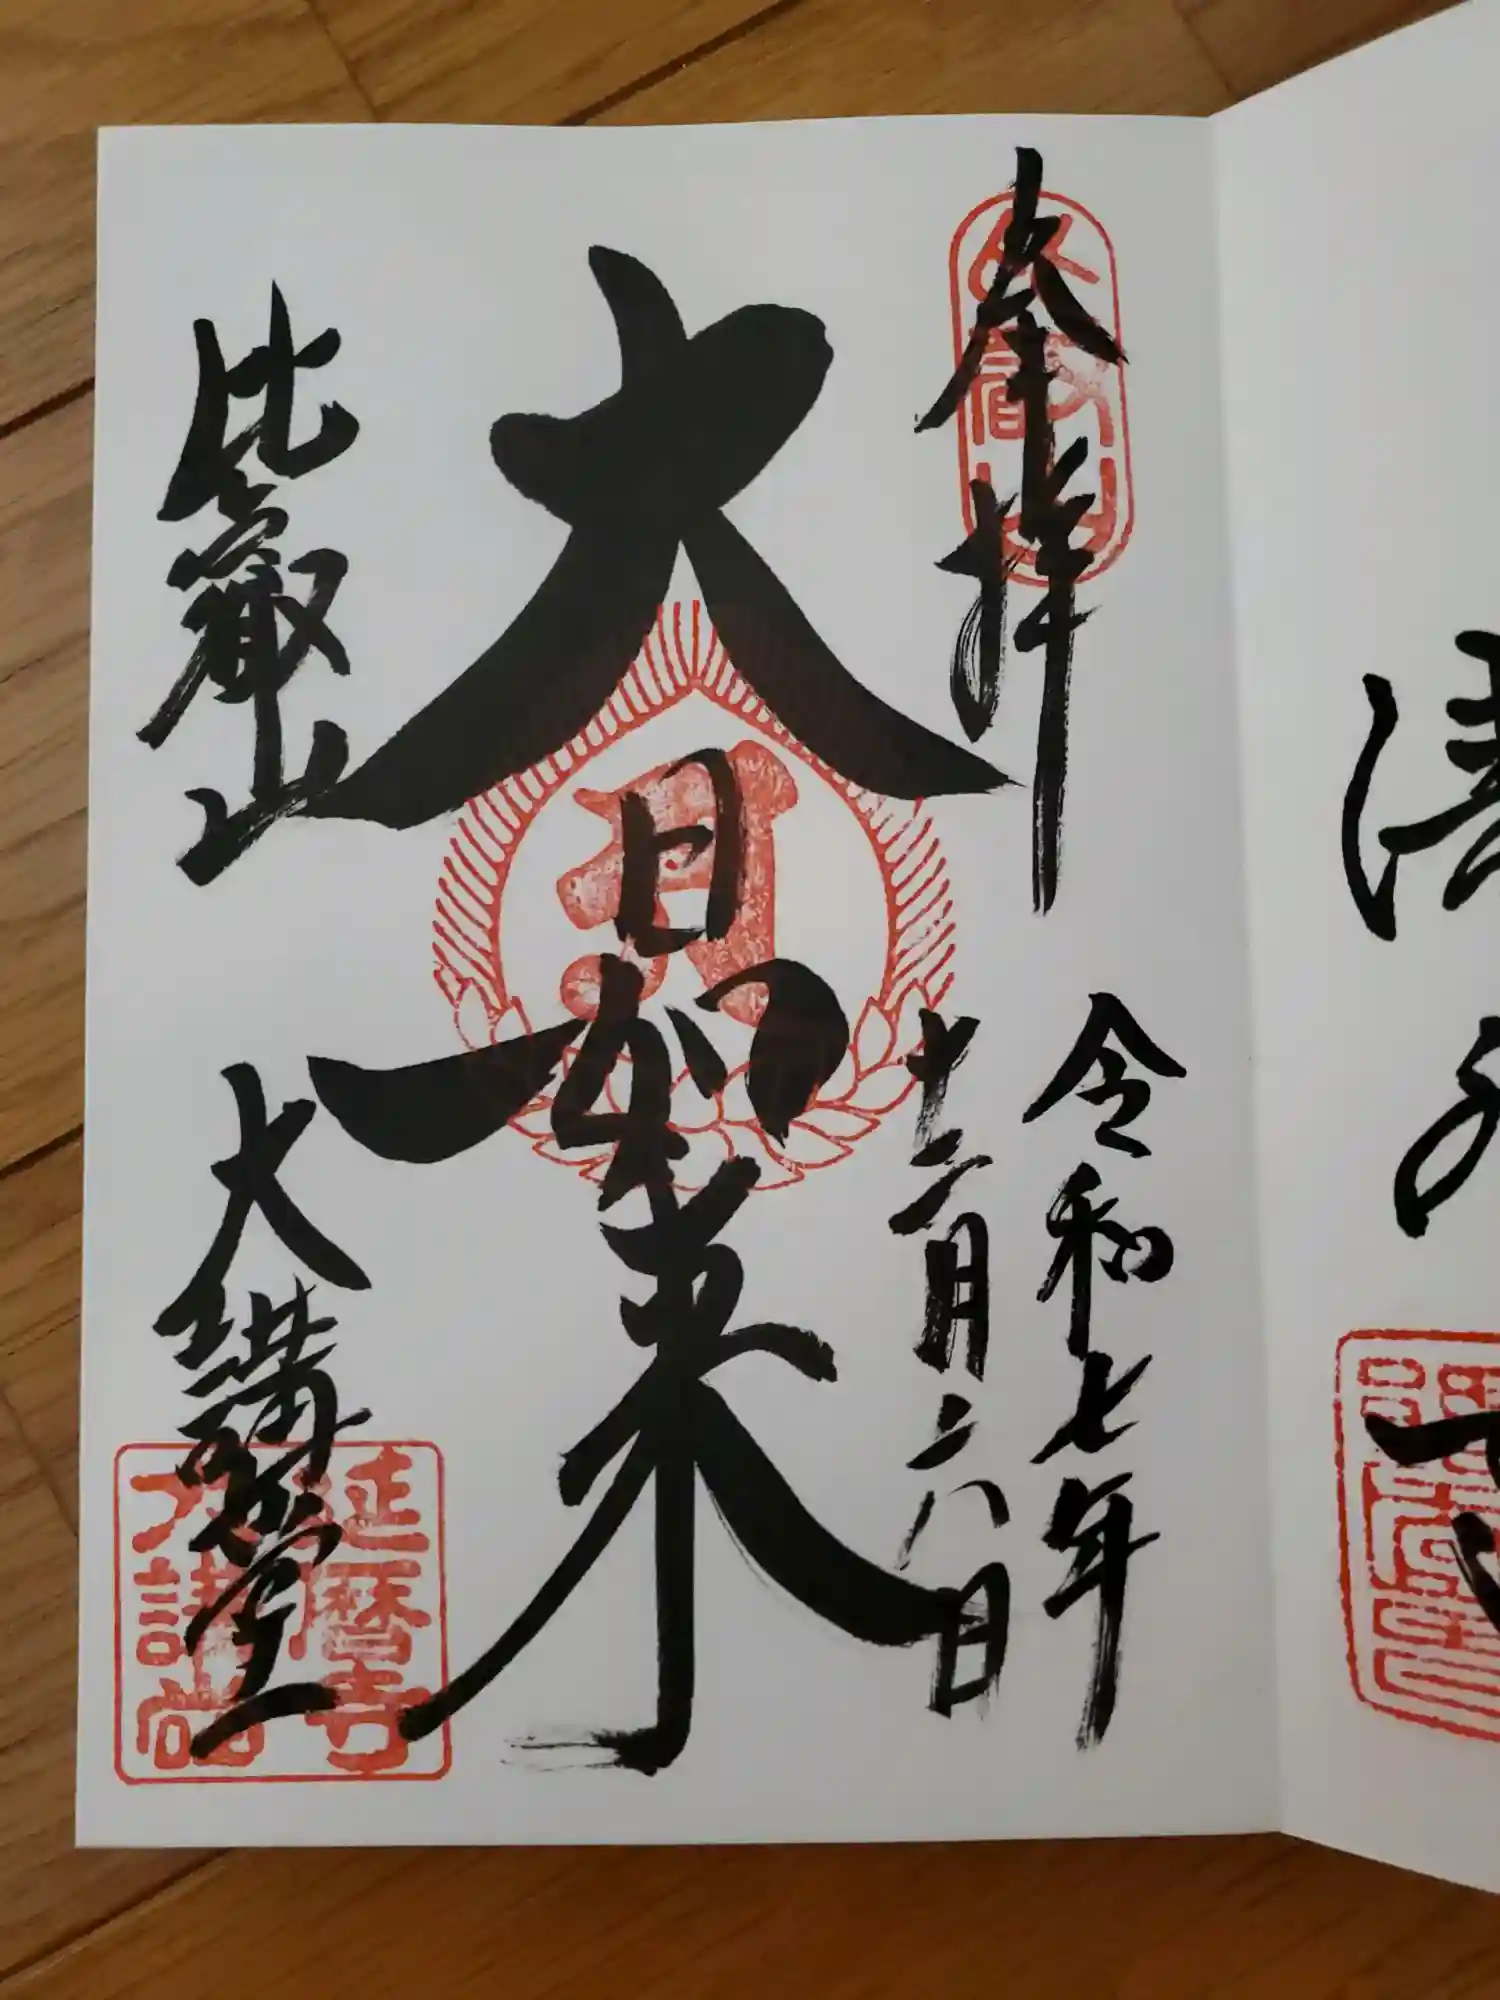 奉拝
令和七年
十二月二八日
大日如来
比叡山
大講堂
比叡山
延暦寺
大講堂